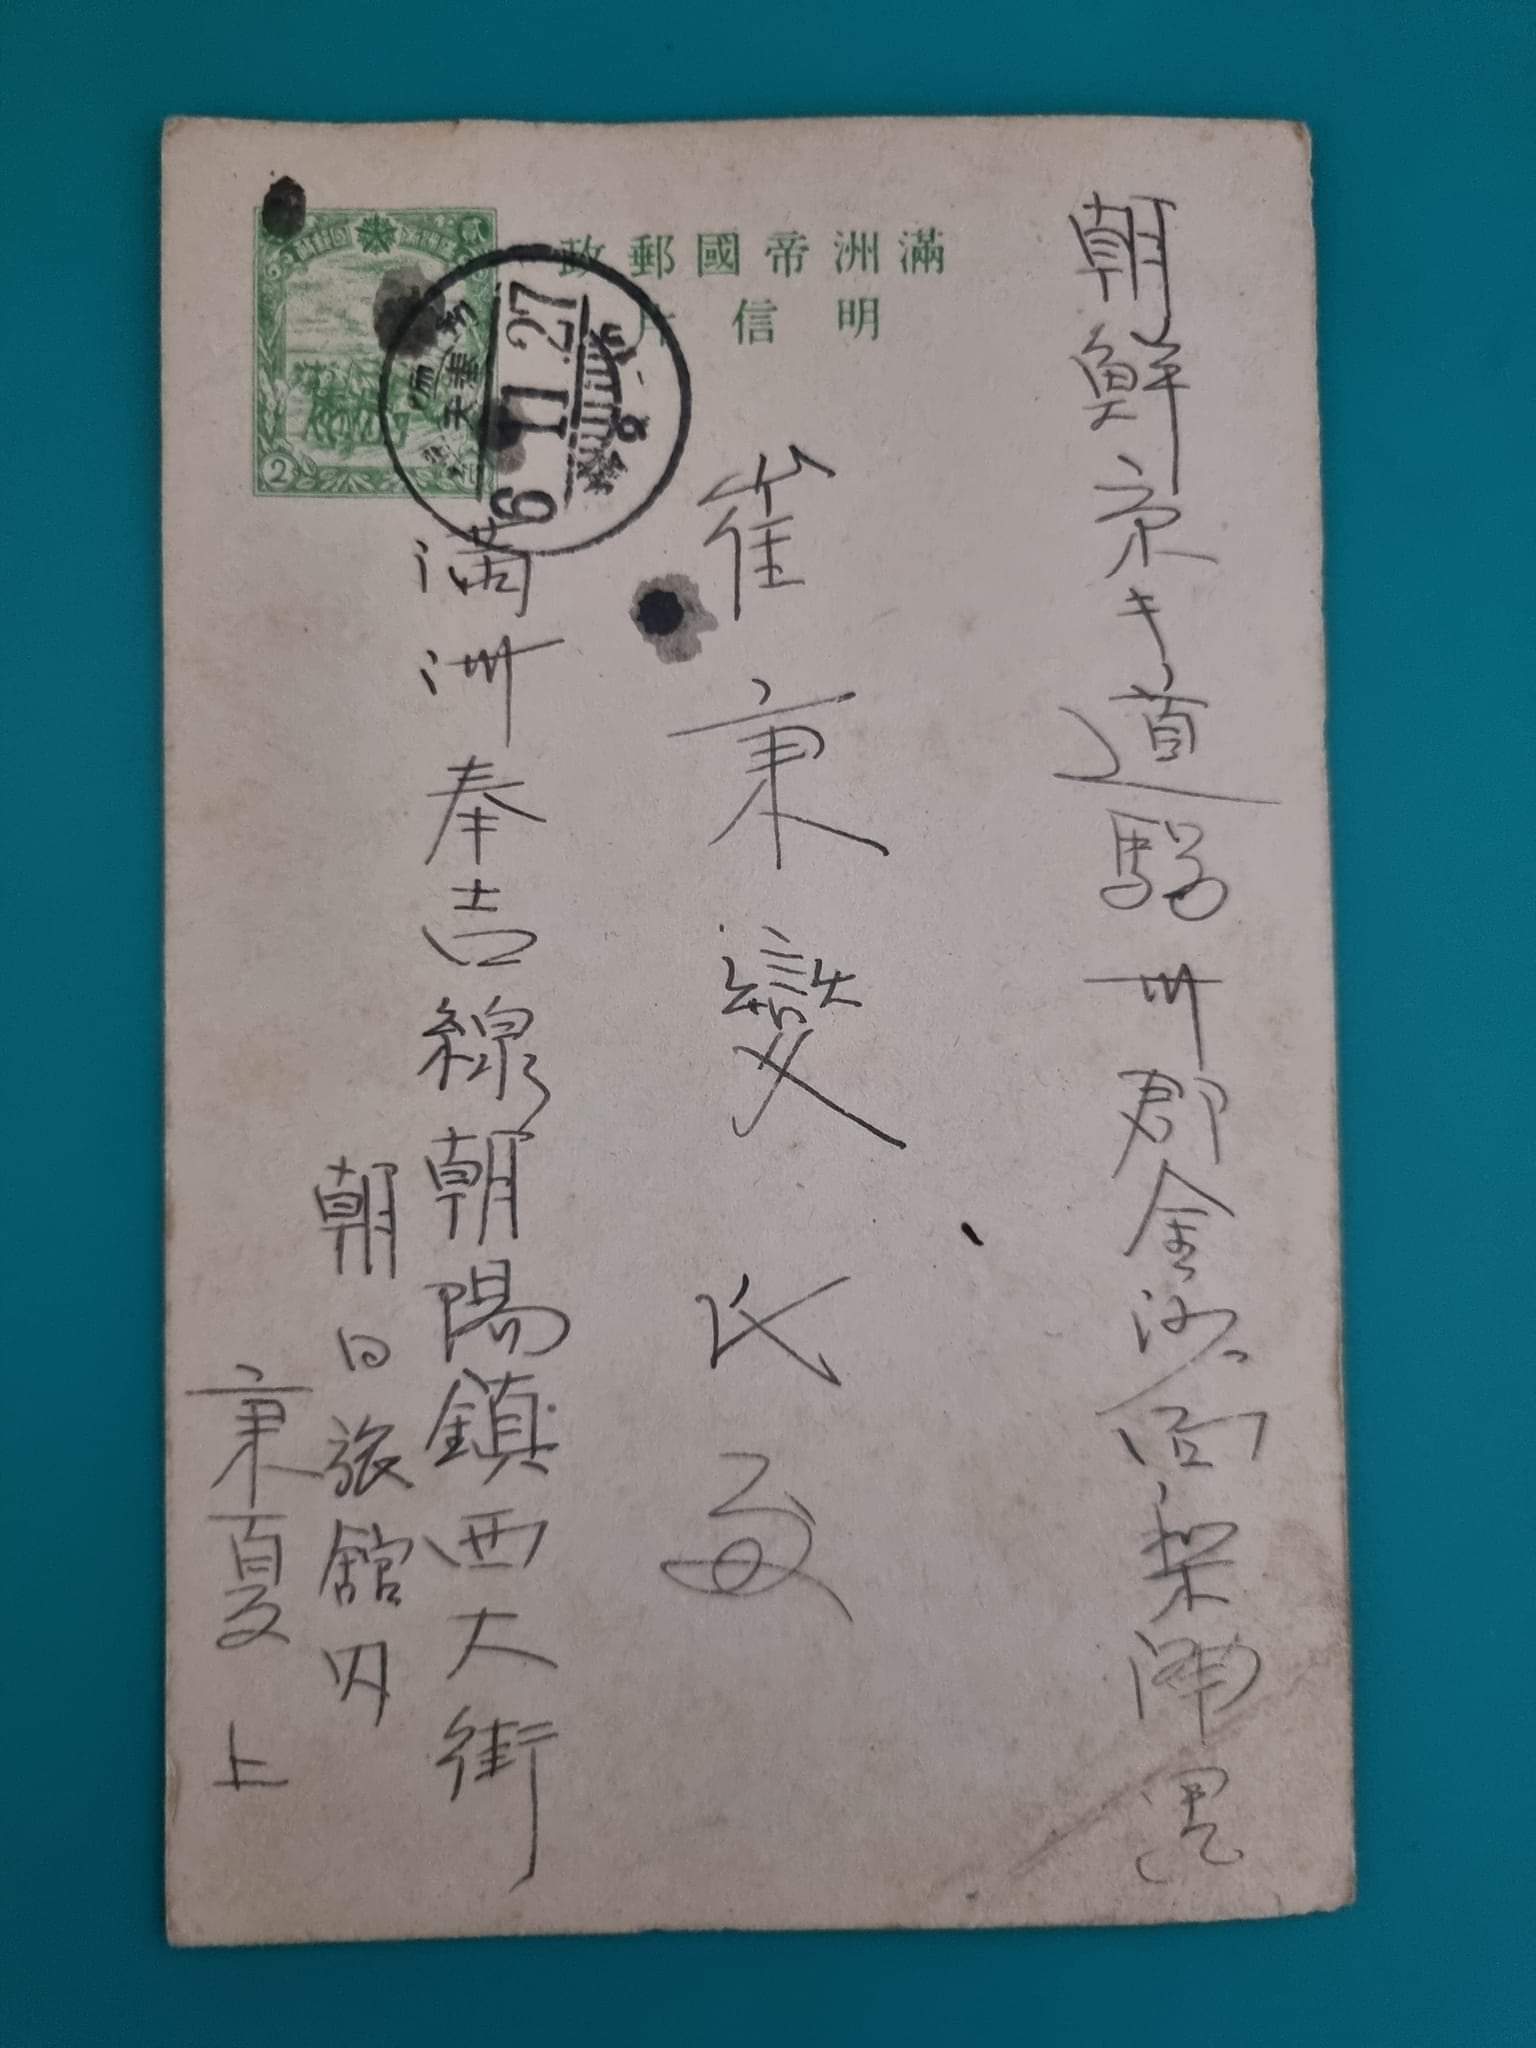 滿洲帝國郵政
明信片
2
6.11.27
朝鮮京キ道驪州郡金沙面梨浦里
崔秉燮氏
満洲奉吉線朝陽鎮西大街
朝日旅館内
秉夏上